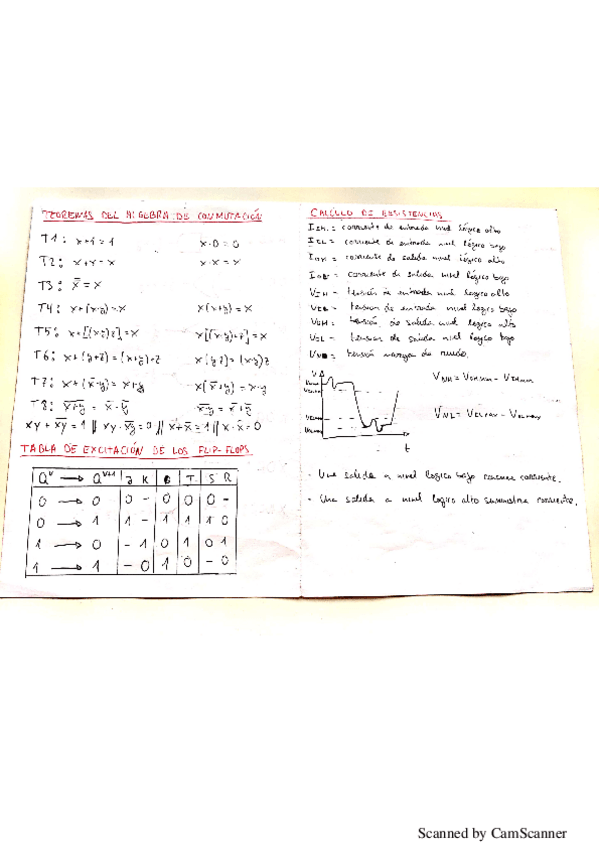 TEOREMAS DEL ALGEBRA DE CONMUTACIÓN
T1: x+1=1 x·0=0
T2: x+x=x x·x=x
T3: x̿=x
T4: x+(x·y)=x x(x+y)=x
T5: x+[(x·y)z]=x x[(x+y)+z]=x
T6: x+(y+z)=(x+y)+z x(yz)=(x·y)z
T7: x+(x̅·y)=x+y x(x̅+y)=x·y
T8: \overline{x+y}=x̅·y̅ \overline{x·y}=x̅+y̅
xy+\overline{xy}=1 || xy·\overline{xy}=0 || x+x̅=1 || x·x̅=0
TABLA DE EXCITACIÓN DE LOS FLIP-FLOPS
Qᵛ → Qᵛ⁺¹ J K D T S R
0 → 0 0 - 0 0 0 -
0 → 1 1 - 1 1 1 0
1 → 0 - 1 0 1 0 1
1 → 1 - 0 1 0 - 0
CALCULO DE RESISTENCIAS
IIH = corriente de entrada nivel lógico alto
IIL = corriente de entrada nivel lógico bajo
IOH = corriente de salida nivel lógico alto
corriente de salida nivel lógico bajo
VIH = tensión de entrada nivel logico alto
tension de entrada nivel logico bajo
VOH = tensión de salida nivel logico alto
VOL = tension de salida nivel logico bajo
tensión margen de ruido.
V
t
- Una salida a nivel logico bajo corriente.
- Una salida a nivel logico alto suministra corriente.
Scanned by CamScanner